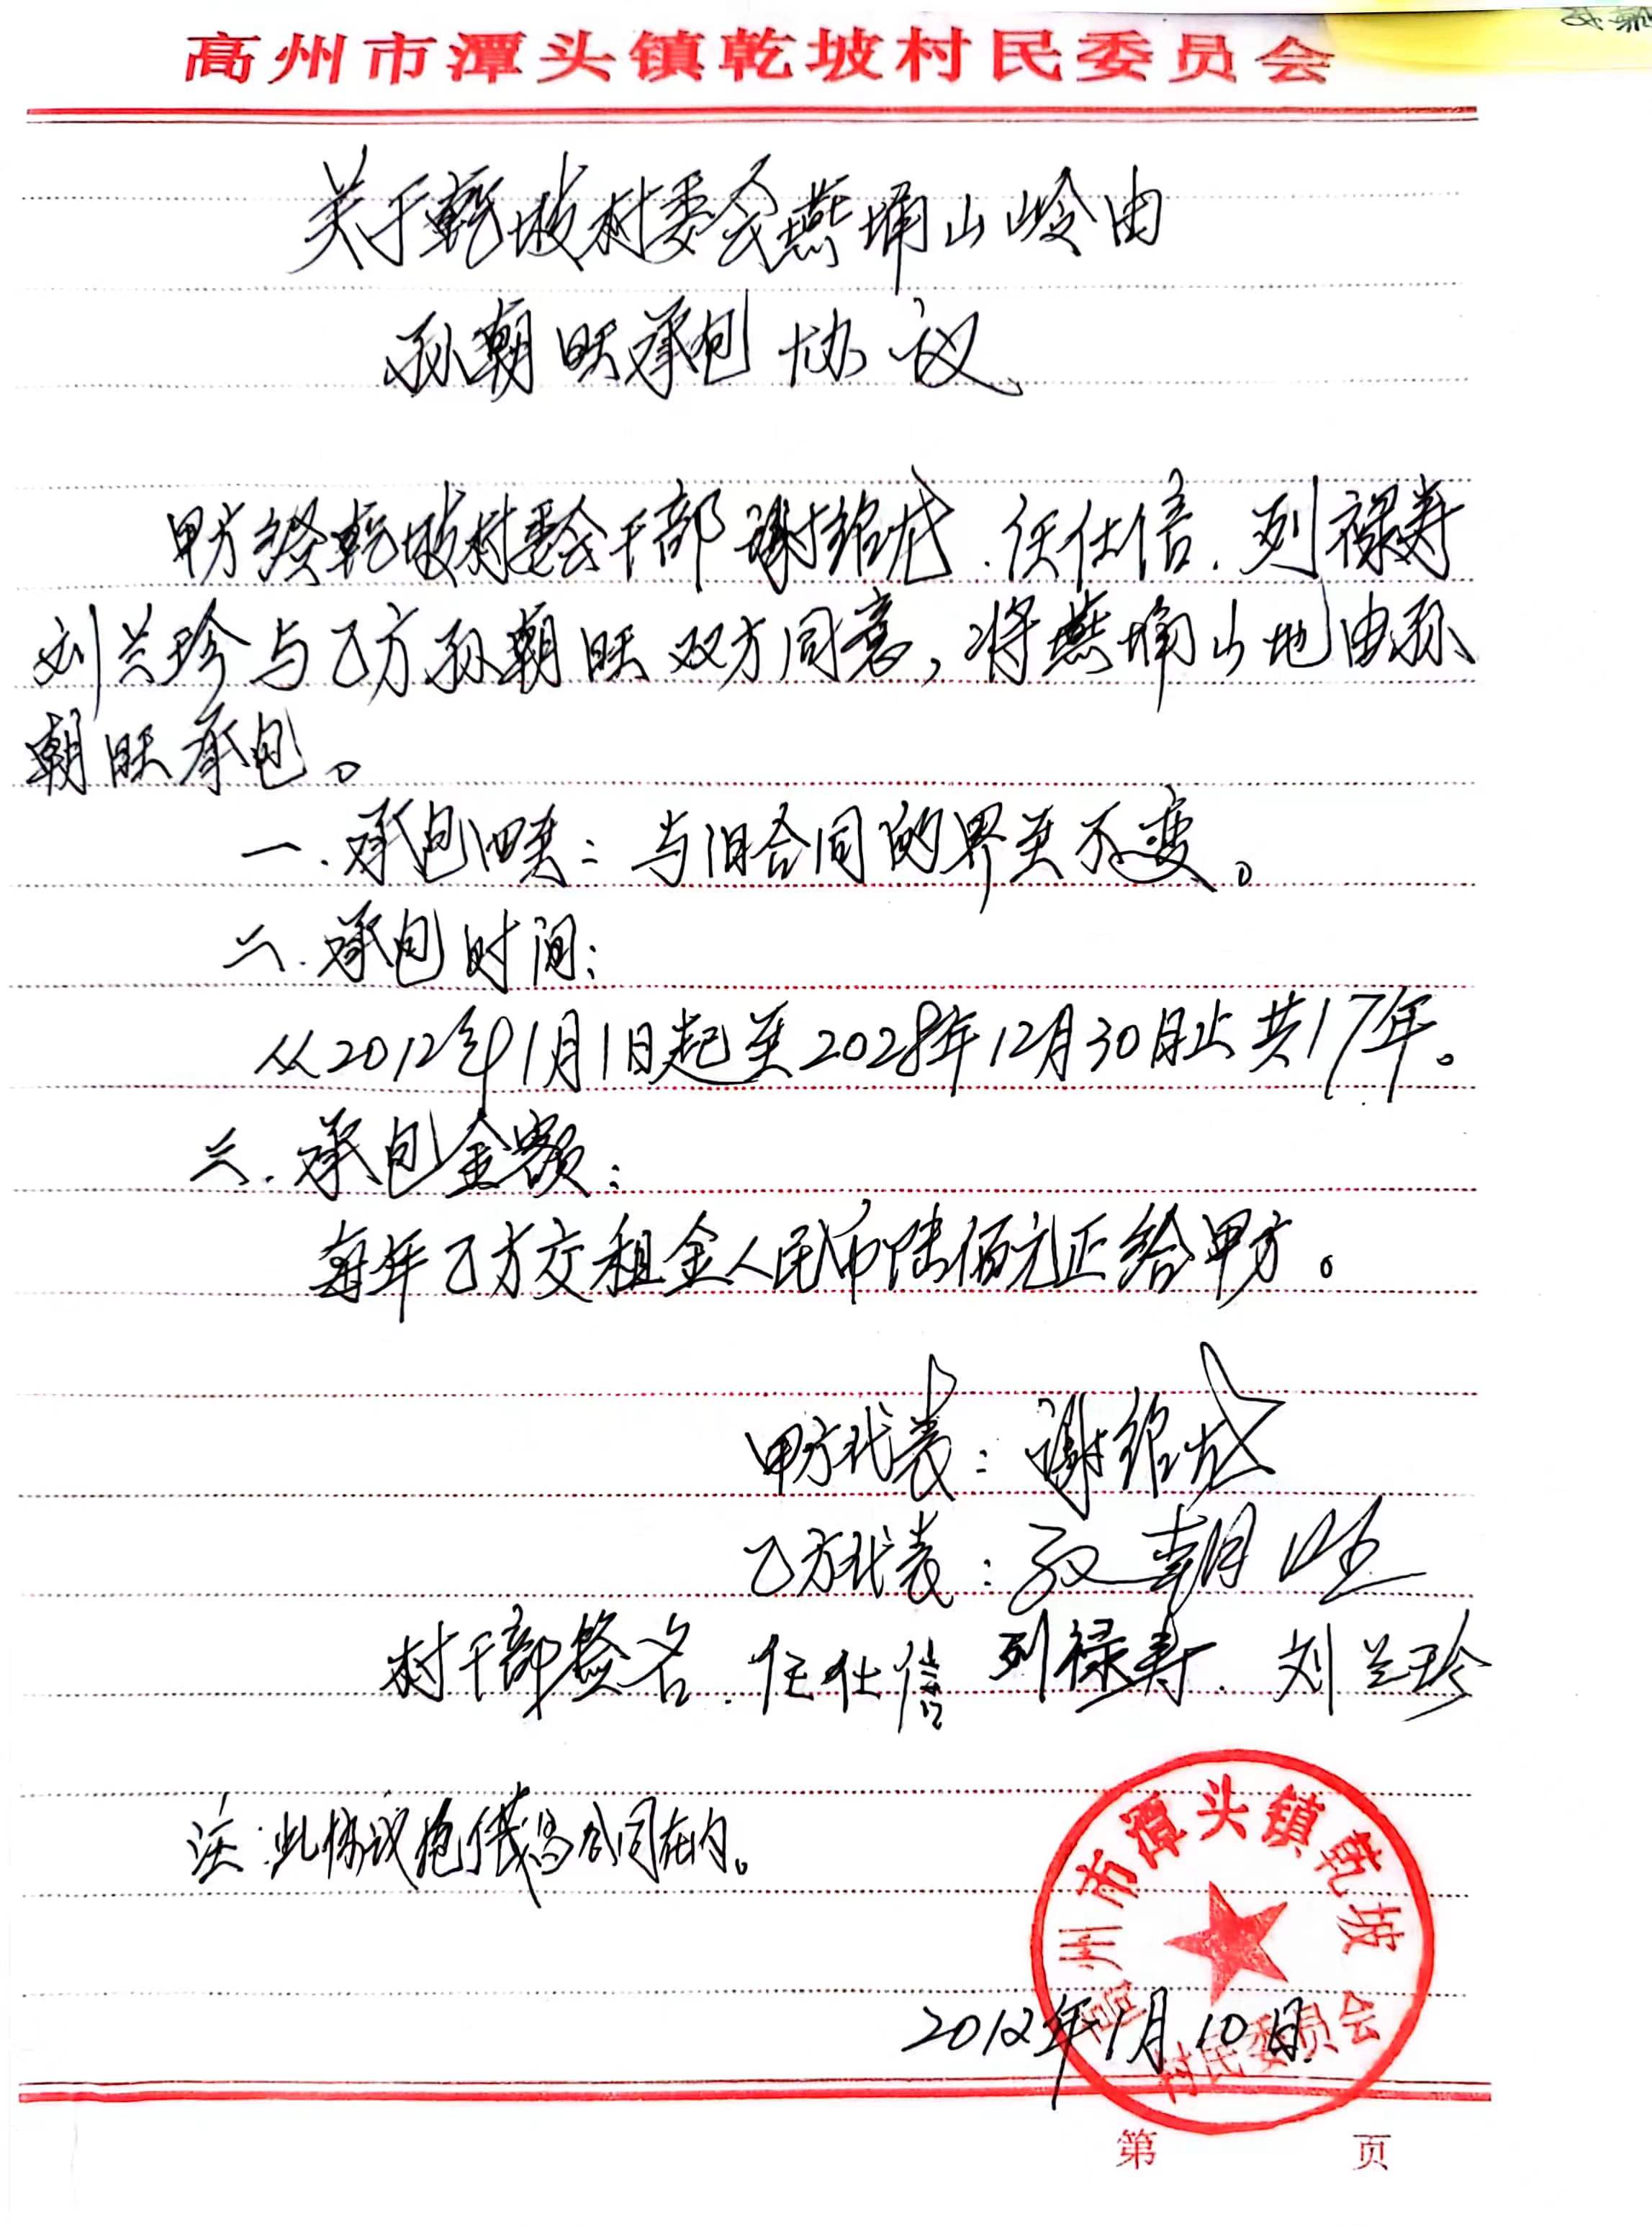 高州市潭头镇乾坡村民委员会
关于乾坡村委会燕埇山岭由
孙朝旺承包协议
甲方经乾坡村委会干部谢绍龙.任仕信.列禄寿
刘兰珍与乙方孙朝旺双方同意,将燕埇山地由孙
朝旺承包。
一.承包四至:与旧合同的界至不变。
二.承包时间:
从2012年1月1日起至2028年12月30日止共17年。
三.承包金额:
每年乙方交租金人民币陆佰元正给甲方。
甲方代表:谢绍龙
乙方代表:孙朝旺
村干部签名.任仕信 列禄寿.刘兰珍
注:此协议公司在内。
高州市潭头镇乾坡
村民委员会
2012年1月10日
第 页